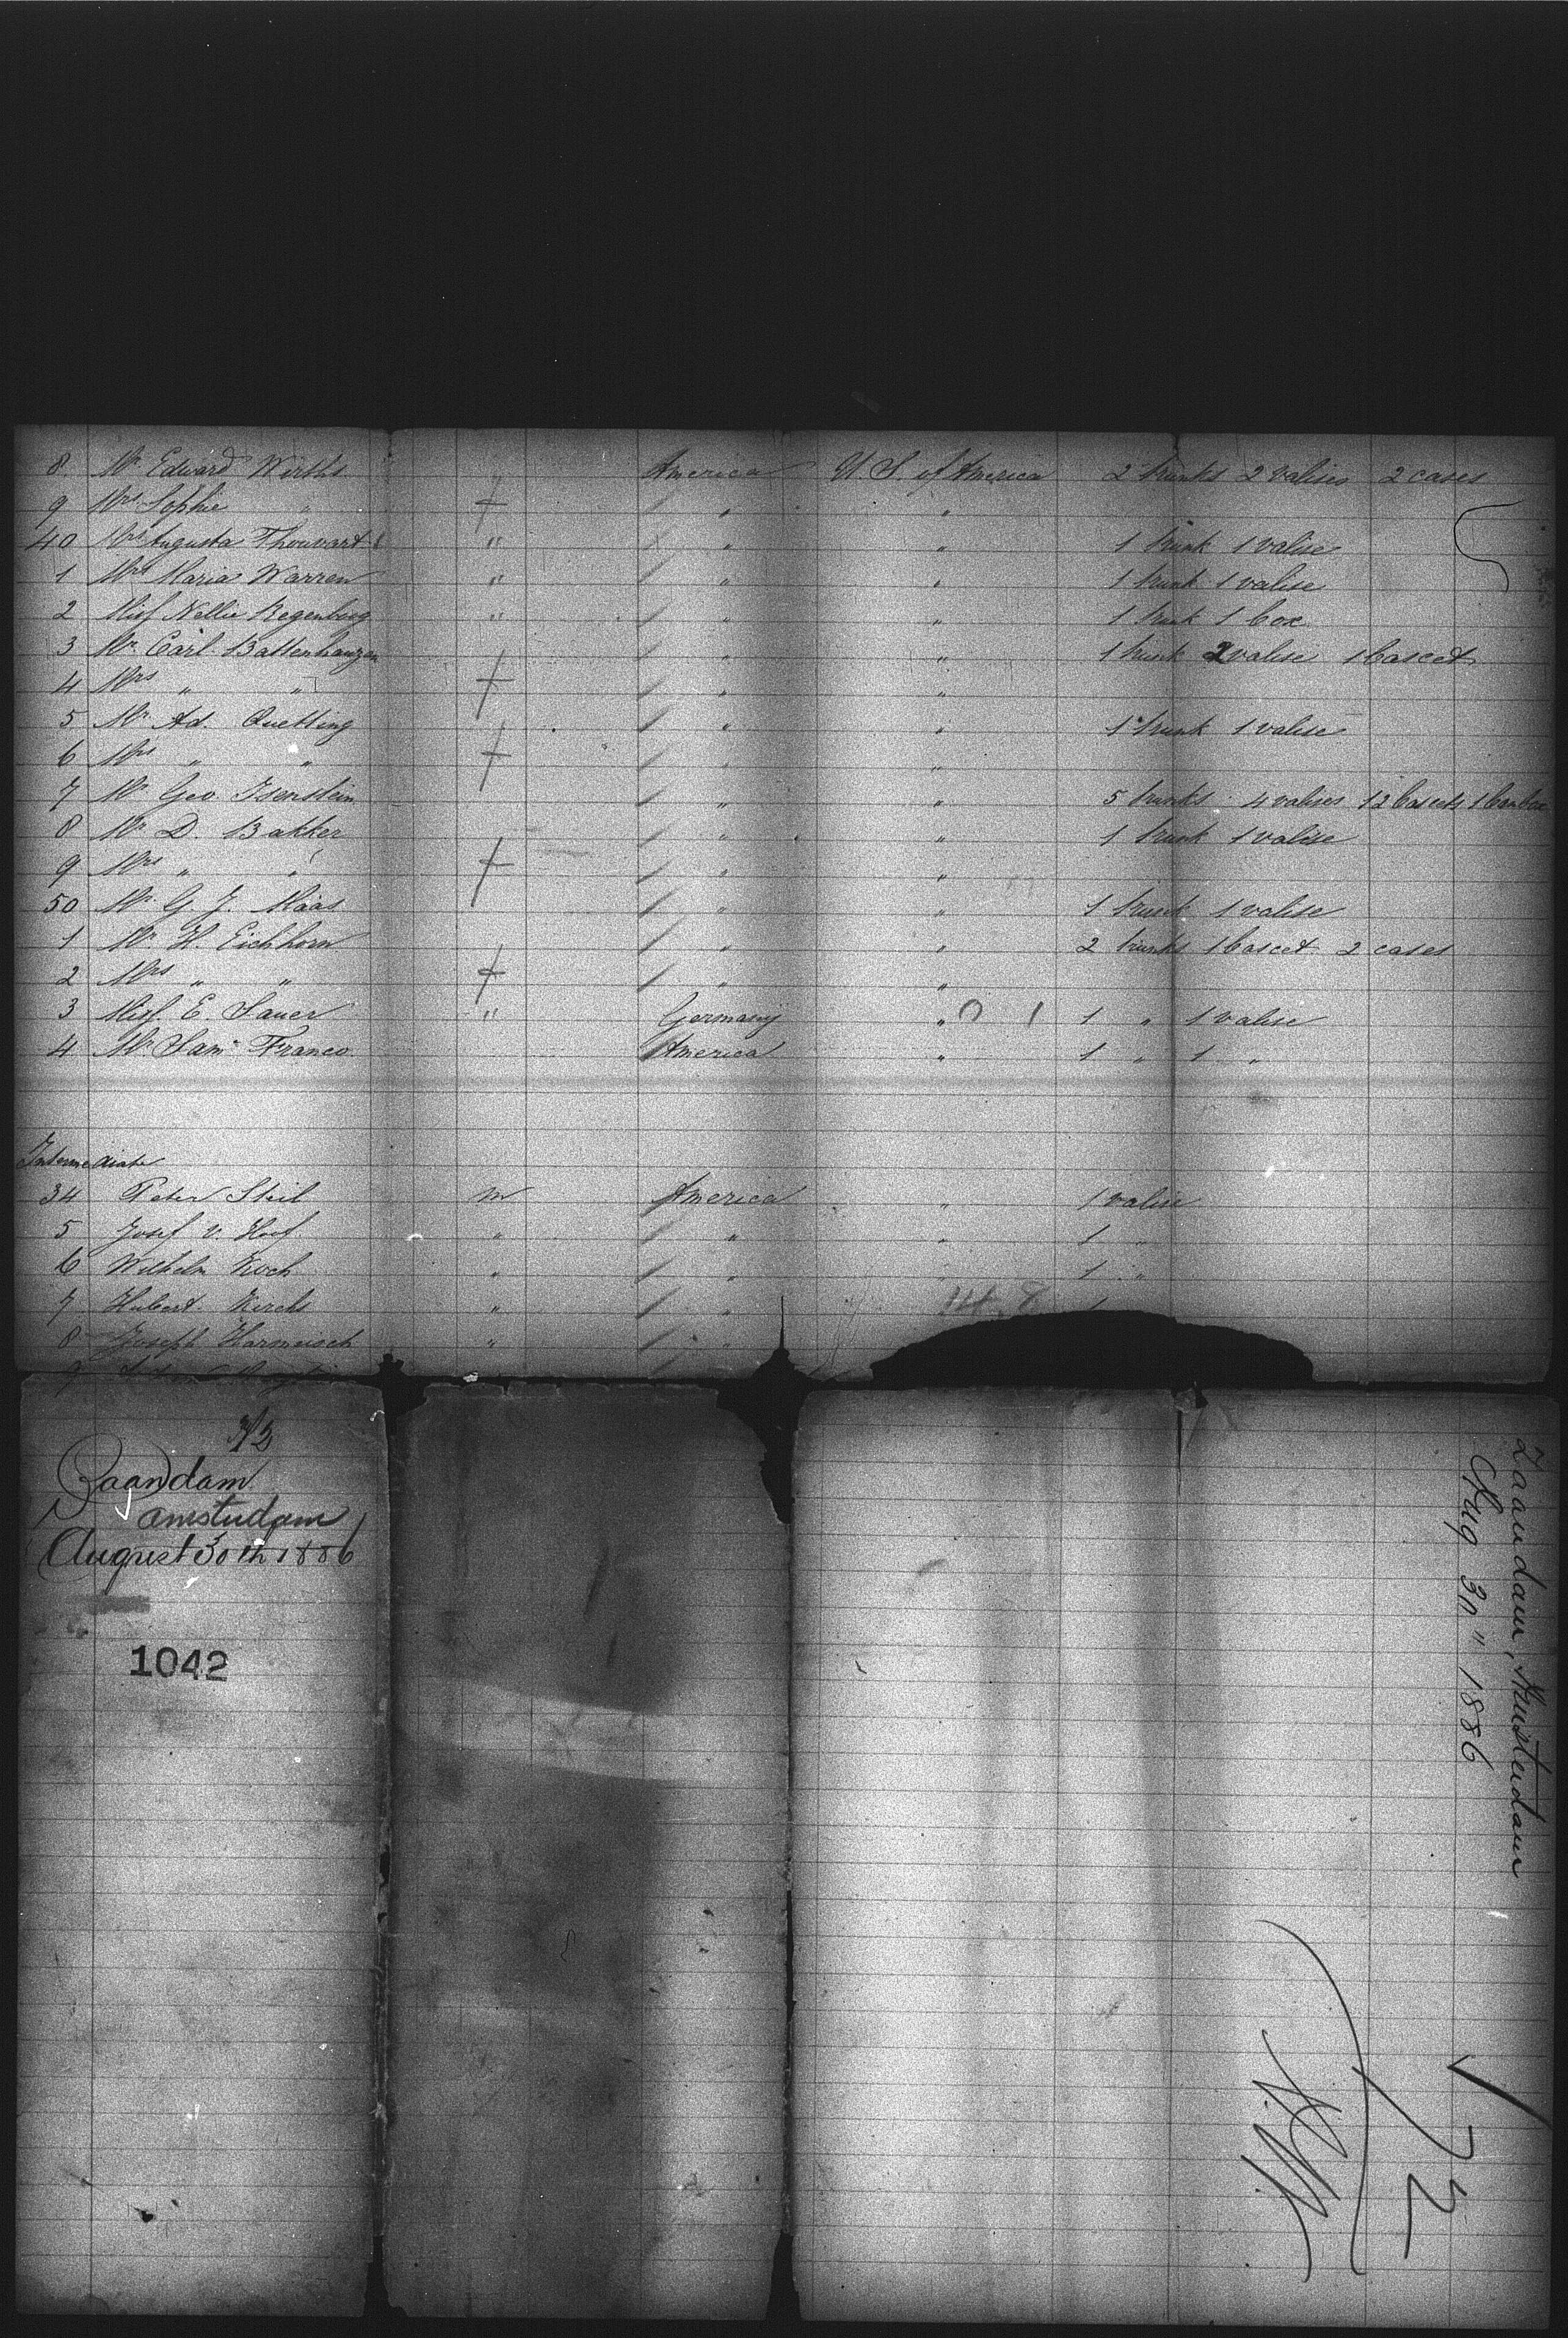 8. Mr Edward Wirths America U. S. of America 2 trunks 2 valises 2 cases
9 Mrs Sophie " " "
40 Mrs Augusta Thouvart " " " 1 trunk 1 valise
1 Mrs Maria Warren " " " 1 trunk 1 valise
2 Miss Nellie Regenberg " " " 1 trunk 1 box
3 Mr Carl Battenhauzen " " 1 trunk 2 valise 1 bascet
4 Mrs " " " "
5 Mr Ad. Quetting " " 1 trunk 1 valise
6 Mrs " " " "
7 Mr Geo. Isenstein " " 5 trunks 4 valises
8 Mr D. Bakker " " 1 trunk 1 valise
9 Mrs " " " "
50 Mr G. J. Maas " " 1 trunk 1 valise
1 Mr H. Eichhorn " " 2 trunks 1 bascet 2 cases
2 Mrs " " " "
3 Miss E. Sauer " Germany " 1 " 1 valise
4 Mr Sam Franco America " 1 " 1 "
Intermediate
34 Peter Skil m America " 1 valise
5 Josef v. Hoof " " " 1 "
6 Wilhelm Koch " " " 1 "
7 Hubert Kerchs " " 1
8 Joseph Harmeisch " "
9
Zaandam
Amsterdam
August 30th 1886
1042
Zaandam, Amsterdam
Aug 30" 1886